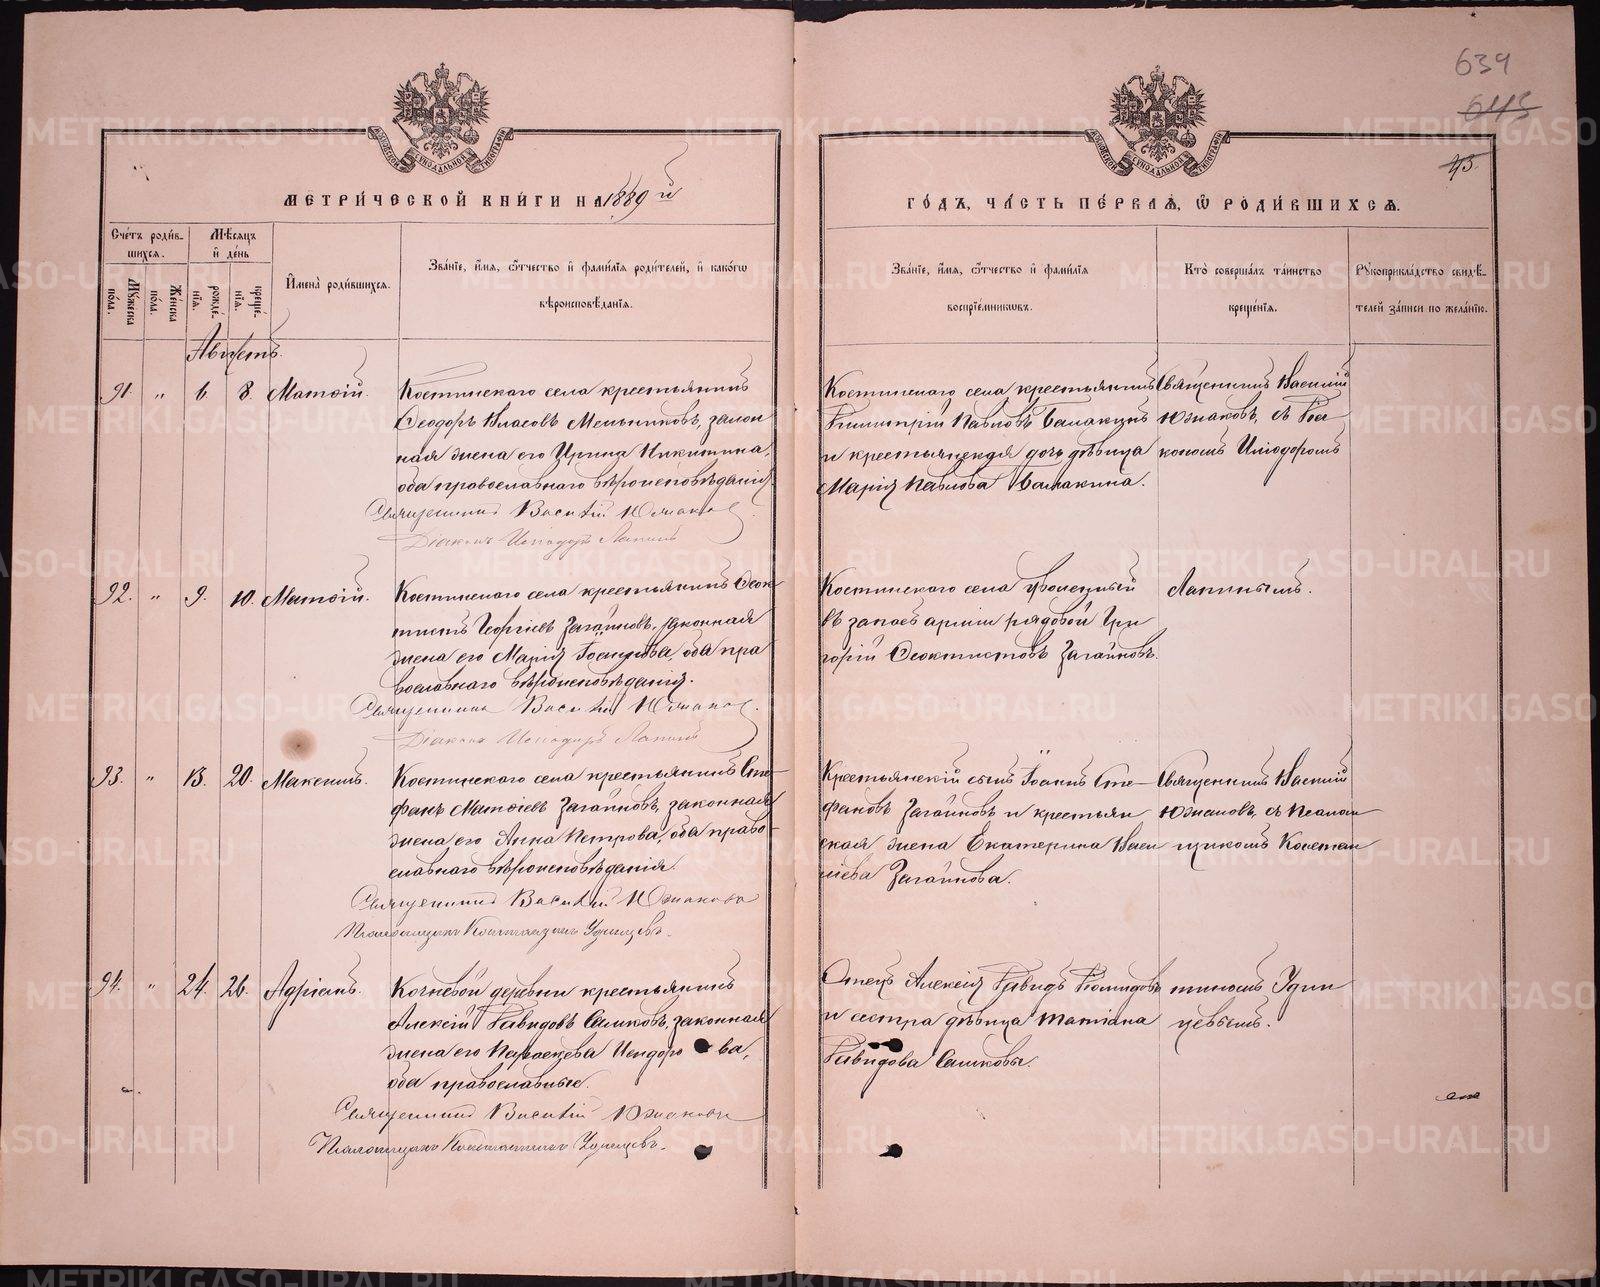 639
643
43.
МЕТРИ́ЧЕСКОЙ КНИ́ГИ НА 1889 й
ГО́ДЪ, ЧА́СТЬ ПЕ́РВАѦ, Ѡ РОДИ́ВШИХСѦ.
Сче́тъ роди́в-
шихсѧ.
Мѣ́сѧцъ
и де́нь
Мꙋ́жеска
по́ла.
Же́нска
по́ла.
рожде́-
нїѧ.
креще́-
нїѧ.
И҆мена̀ роди́вшихсѧ.
Зва́нїе, и҆́мѧ, ѻ҆́тчество и҆ фами́лїѧ роди́телей, и҆ како́гѡ
вѣроисповѣ́данїѧ.
Зва́нїе, и҆́мѧ, ѻ҆́тчество и҆ фами́лїѧ
воспрїе́мникѡвъ.
Кто̀ соверша́лъ та́инство
креще́нїѧ.
Рꙋкоприкла́дство свидѣ́-
телей за́писи по жела́нїю.
Августъ.
91. " 6. 8. Матѳій.
Костинскаго села крестьянинъ
Ѳеодоръ Власовъ Мельниковъ, закон
ная жена его Ирина Никитина,
оба православнаго вѣроисповѣданія.
Священникъ Василій Южаковъ
Діаконъ Исидоръ Лапинъ
Костинскаго села крестьянинъ
Димитрій Павловъ Балакинъ
и крестьянская дочь дѣвица
Марія Павлова Балакина.
Священникъ Василій
Южаковъ, съ Діа
кономъ Исидоромъ
92. " 9. 10. Матѳій.
Костинскаго села крестьянинъ Ѳеок
тистъ Георгіевъ Загайновъ, законная
жена его Марія, оба пра
вославнаго вѣроисповѣданія.
Священникъ Василій Южаковъ.
Діаконъ Исидоръ Лапинъ
Костинскаго села уволенный
въ запасъ арміи рядовой Гри
горій Ѳеоктистовъ Загайновъ.
Лапинымъ.
93. " 13. 20. Максимъ.
Костинскаго села крестьянинъ Сте-
фанъ Матѳіевъ Загайновъ, законная
жена его Анна Петрова, оба право-
славнаго вѣроисповѣданія.
Священникъ Василій Южаковъ
Псаломщикъ Константинъ Удинцевъ.
Крестьянскій сынъ Іоаннъ Сте-
фановъ Загайновъ и крестьян
ская жена Екатерина Васи
ліева Загайнова.
Священникъ Василій
Южаковъ, съ Псалом
щикомъ Констан
94. " 24. 26. Адріанъ.
Кочневой деревни крестьянинъ
Алексій Давидовъ Сашковъ, законная
жена его Параскева Исидорова,
оба православные.
Священникъ Василій Южаковъ
Псаломщикъ Константинъ Удинцевъ.
Отецъ Алексія Давидъ
и сестра дѣвица Татіана
Давидова Сашковы.
тиномъ Удин
цевымъ.